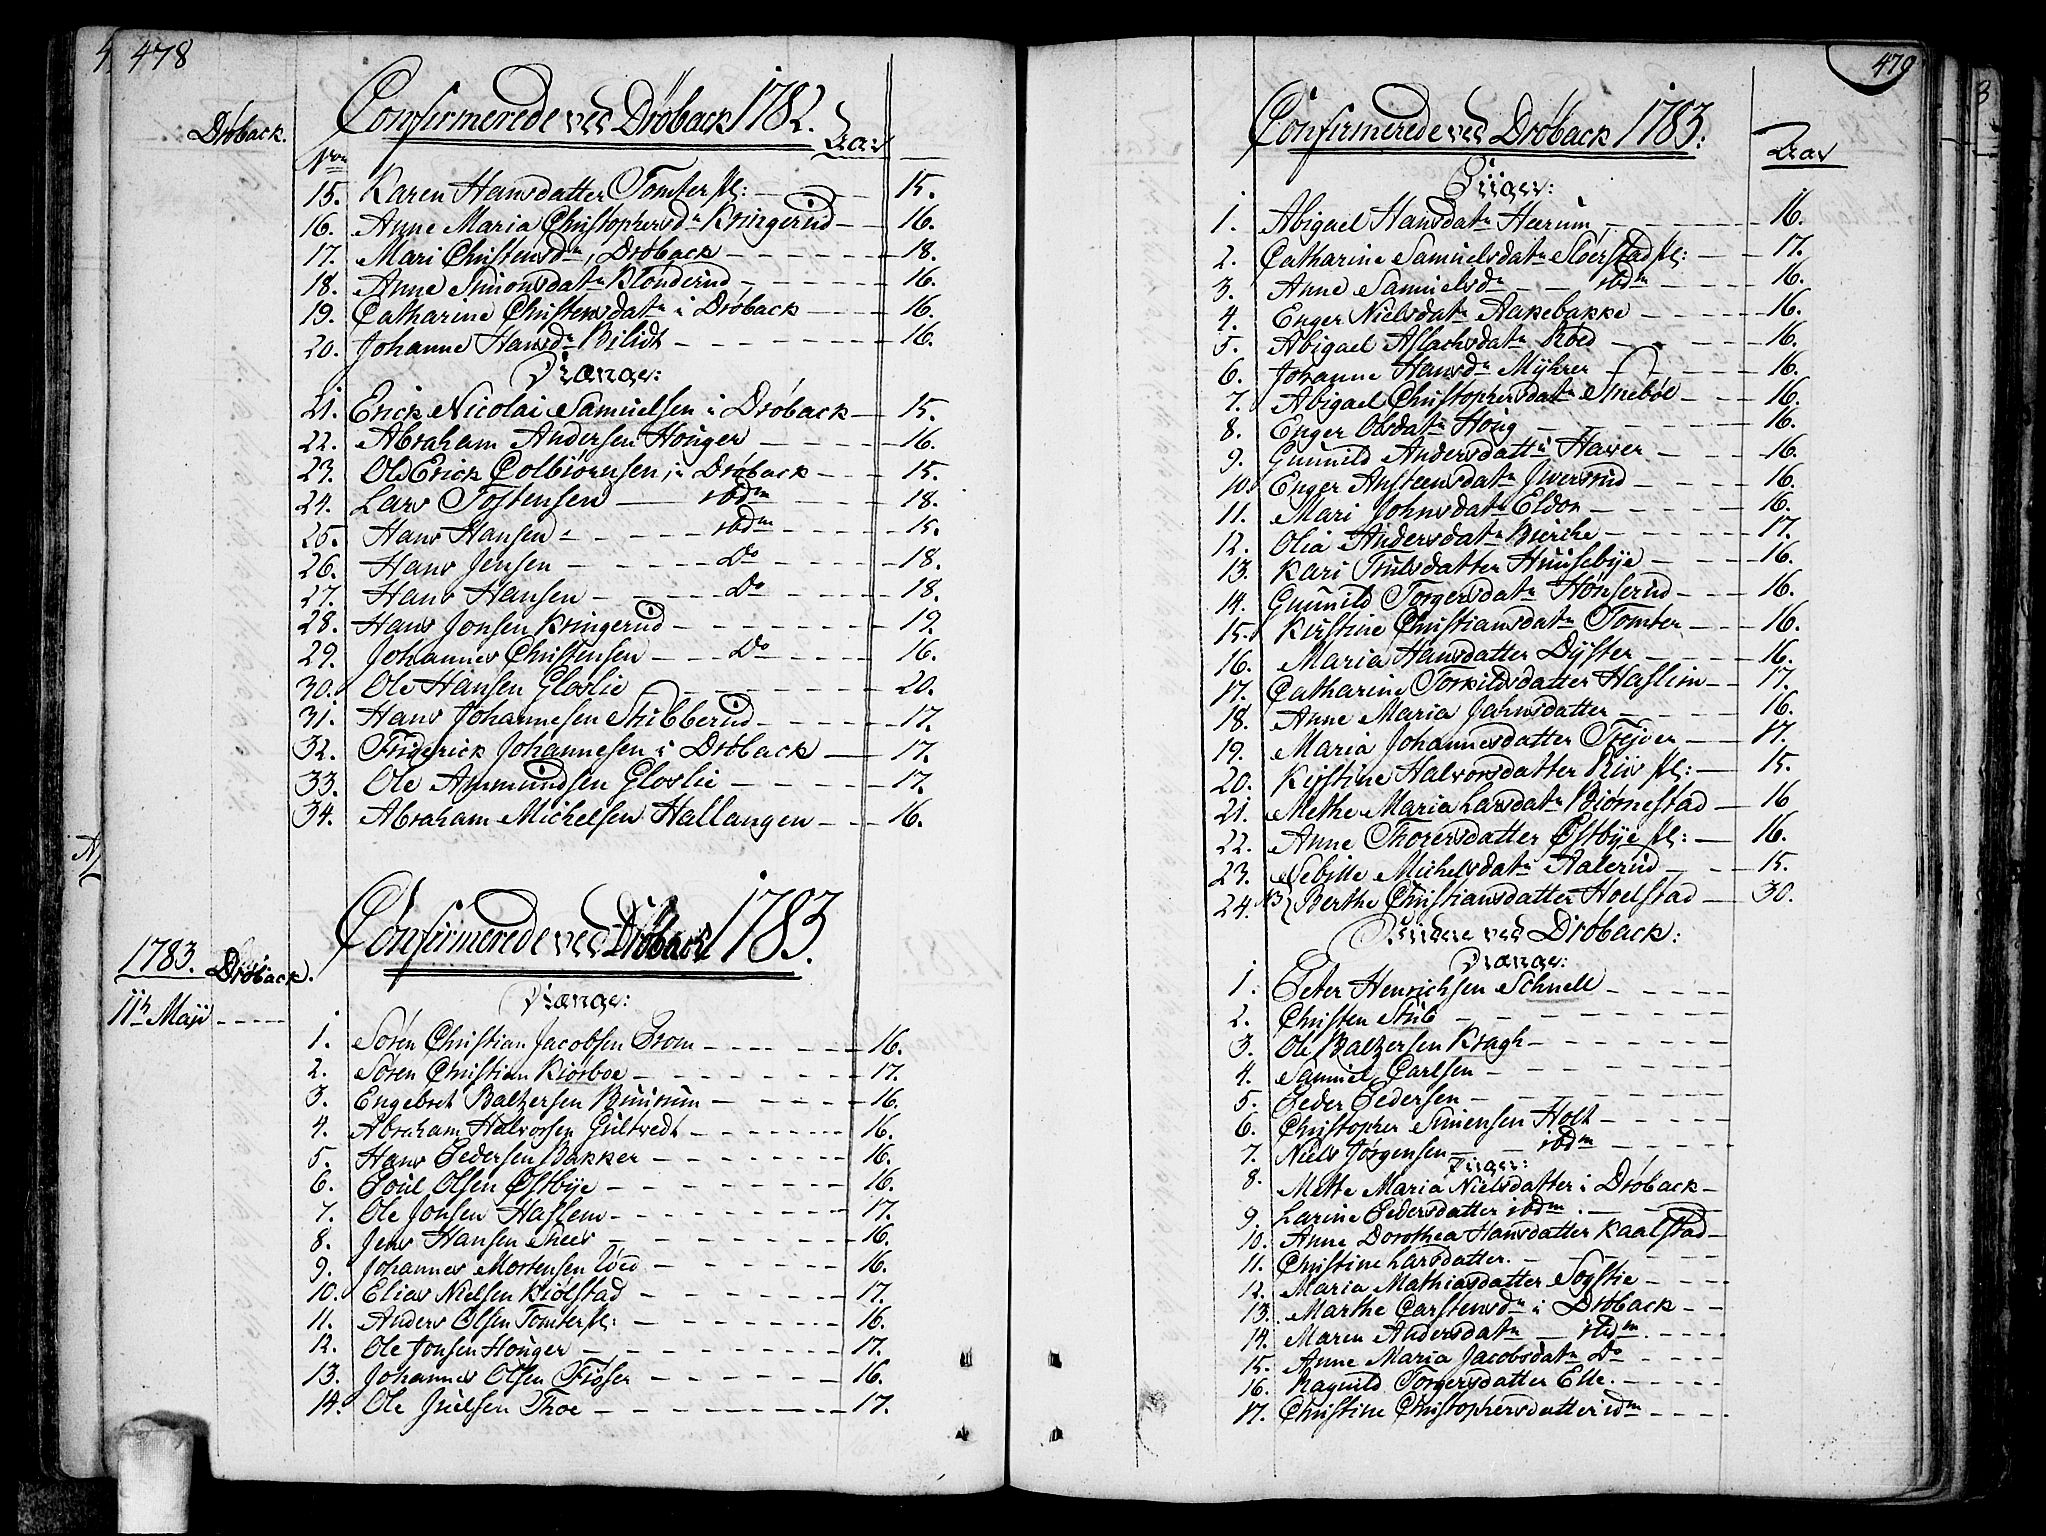 478
Drøback.
Confirmerede ved Drøback 1782.
Aar
15. Karen Hansdatter Tomter pl: 15.
16. Anne Maria Christophersdr Kringerud 16.
17. Mari Christensdr, Drøback 18.
18. Anne Simonsdatr Blonderud 16.
19. Catharine Christensdatr i Drøback 16.
20. Johanne Hansdr Bilidt 16.
Drænge:
21. Erick Nicolai Samuelsen i Drøback 15.
22. Abraham Andersen Houger 16.
23. Ole Erick Colbiørnsen, i Drøback 15.
24. Lars Tostensen ibdm 18.
25. Hans Hansen ibdm 15.
26. Hans Jensen Do 18.
27. Hans Hansen Do 18.
28. Hans Jonsen Kringerud 19.
29. Johannes Christensen Do 16.
30. Ole Hansen Gloslie 20.
31. Hans Johannesen Stubberud 17.
32. Friderick Johannesen i Drøback 17.
33. Ole Ammundsen Gloslie 17.
34. Abraham Michelsen Hallangen 16.
Confirmerede ved Drøback 1783.
1783. Drøback.
11te Maji
Drænge:
1. Søren Christian Jacobsen Trom 16.
2. Søren Christian Kiørboe 17.
3. Engebret Baltzersen Buurum 16.
4. Abraham Halvorsen Gultvedt 16.
5. Hans Pedersen Bakker 16.
6. Poul Olsen Østbye 16.
7. Ole Jonsen Haslem 17.
8. Jens Hansen Nees 16.
9. Johannes Mortensen 16.
10. Elias Nielsen Kiølstad 17.
11. Anders Olsen Tomter pl: 16.
12. Ole Jonsen Houger 17.
13. Johannes Olsen Fiøser 16.
14. Ole Juelsen Thoe 17.
479
Confirmerede ved Drøback 1783.
Aar
Piiger:
1. Abigael Hansdatr Heerum, 16.
2. Catharine Samuelsdatr Sloerstad pl: 17.
3. Anne Samuelsdr ibdm 16.
4. Enger Nielsdatr Aakebakke 16.
5. Abigael Aslachsdatr Røed 16.
6. Johanne Hansdr Myhrer 16.
7. Abigael Christophersdatr Snebøe 16.
8. Enger Olsdatr Houg 16.
9. Gunnild Andersdattr i Haver 16.
10. Enger Austeensdatr Iversrud 16.
11. Mari Johnsdatr Eldor 16.
12. Olia Andersdatr Bierche 17.
13. Kari Trulsdatter Huusebye 16.
14. Gunnild Torgersdatr Hønserud 16.
15. Kirstine Christiansdatr Tomter 16.
16. Maria Hansdatter Dyster 16.
17. Catharine Torkildsdatter Haslim 17.
18. Anne Maria Jahnsdatter 16.
19. Maria Johannesdatter Trejer 17.
20. Kirstine Halvorsdatter Riis pl: 15.
21. Methe Maria Larsdatr Biørnestad 16
22. Anne Thorersdatter Østbye pl: 16.
23. Sebille Michelsdatr Aalerud 15.
24. NB Berthe Christiansdatter Hoelstad 30.
Ved Drøback:
Drænge:
1. Peter Henrichsen Schnell
2. Christen Stub
3. Ole Baltzersen Kragh
4. Samuel Carlsen
5. Peder Pedersen
6. Christopher Simensen Holt
7. Niels Jørgensen ibdm
Piiger:
8. Mette Maria Nielsdatter i Drøback
9. Larine Pedersdatter ibdm
10. Anne Dorothea Hansdatter Kaalstad
11. Christine Larsdatter
12. Maria Mathiasdatter Sogstie
13. Marthe Carstensdr i Drøback
14. Maren Andersdatr ibdm
15. Anne Maria Jacobsdatr Do
16. Ragnild Torgersdatter Elle.
17. Christine Christophersdatter idm